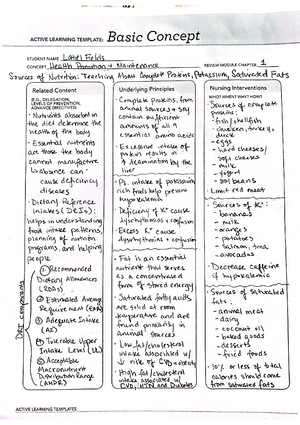 ACTIVE LEARNING TEMPLATE: Basic Concept
STUDENT NAME Label Fields
CONCEPT Health Promotion + Maintenance REVIEW MODULE CHAPTER 1
Sources of Nutrition: Teaching About Complete Proteins, Potassium, Saturated Fats
Related Content
(E.G., DELEGATION,
LEVELS OF PREVENTION,
ADVANCE DIRECTIVES)
· Nutrients absorbed in
the diet determine the
health of the body
· Essential nutrients
are those the body
cannot manufacture
↳ absence can
cause deficiency
diseases
· Dietary Reference
Intakes (DRIs):
helps in understanding
food intake patterns,
planning of nutrition
programs, and helping
people
DRI Components
① Recommended
Dietary Allowances
(RDAs)
② Estimated Average
Requirement (EAR)
③ Adequate Intake
(AI)
④ Tolerable Upper
Intake Level (UL)
⑤ Acceptable
Macronutrient
Distribution Range
(AMDR)
Underlying Principles
· Complete proteins, from
animal sources + soy
contain sufficient
amounts of all 9
essential amino acids
· Excessive intake of
protein results in
↑ deamination by the
liver
· Pt. intake of potassium
rich foods help prevent
hypokalemia
· Deficiency of K⁺ cause
dysrhythmias + confusion
· Excess K⁺ cause
dysrhythmias + confusion
· Fat is an essential
nutrient that serves
as a concentrated
form of stored energy
· Saturated fatty acids
are solid at room
temperature and are
found primarily in
animal sources
· Low fat/cholesterol
intake associated w/
↓ risk of CVD + obesity
· High fat/cholesterol
intake associated w/
CVD, HTN and Diabetes
Nursing Interventions
WHO? WHEN? WHY? HOW?
· Sources of complete
proteins:
- fish/shellfish
- chicken, turkey,
duck
- eggs
- hard cheeses/
soft cheeses
- milk
- yogurt
- soy beans
· Limit red meat
· Sources of K⁺:
- bananas
- milk
- oranges
- potatoes
- salmon, tuna
- avocados
· Decrease caffeine
if hypokalemic
· Sources of saturated
fats:
- animal meat
- dairy
- coconut oil
- baked goods
- desserts
- fried foods
· 10% or less of total
calories should come
from saturated fats
ACTIVE LEARNING TEMPLATES